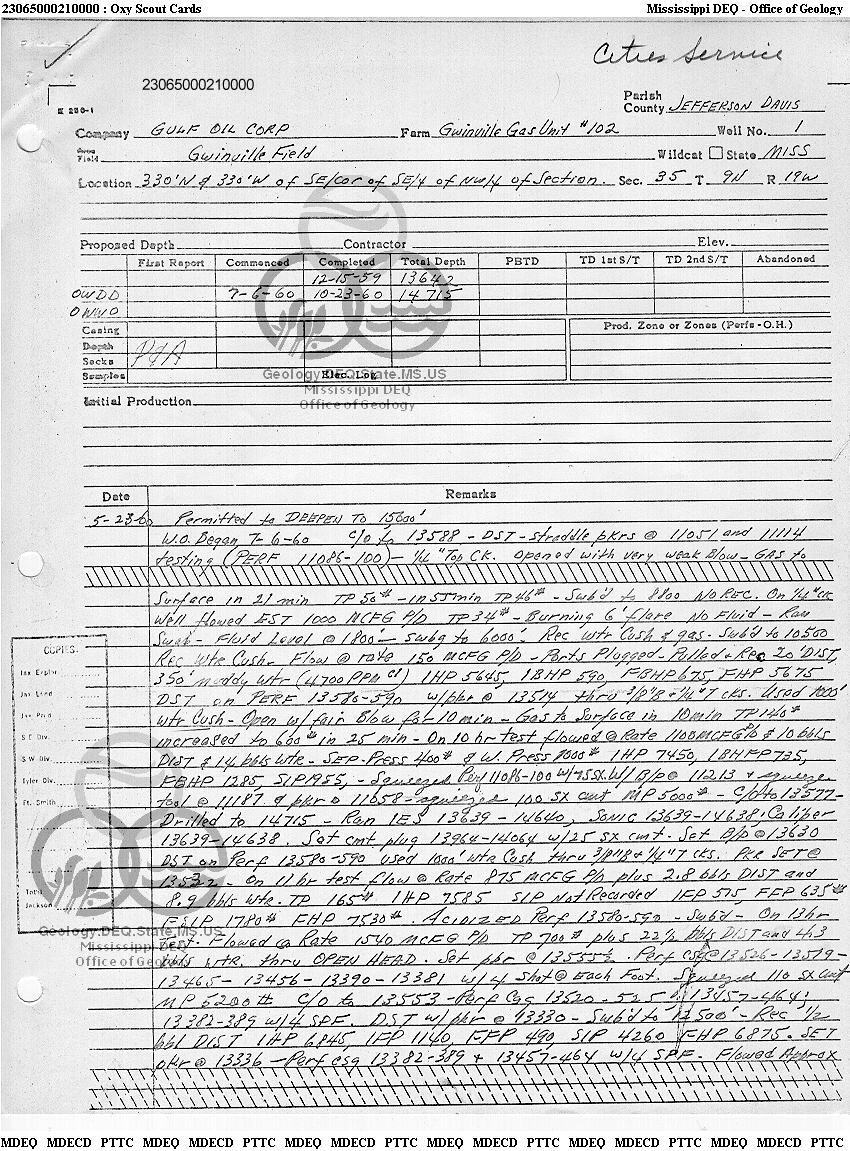 23065000210000 : Oxy Scout Cards Mississippi DEQ - Office of Geology
Cities Service
23065000210000
Parish
County JEFFERSON DAVIS
Company GULF OIL CORP Farm Gwinville Gas Unit #102 Well No. 1
Field Gwinville Field Wildcat State MISS
Location 330'N & 330'W of SE/cor of SE/4 of NW/4 of Section. Sec. 35 T 9N R 19W
Proposed Depth Contractor Elev.
First Report Commenced Completed Total Depth PBTD TD 1st S/T TD 2nd S/T Abandoned
12-15-59 13642
OWDD 7-6-60 10-23-60 14715
OWWO
Casing Prod. Zone or Zones (Perfs - O.H.)
Depth P&A
Sacks
Samples Elec. Log
Geology.DEQ.State.MS.US
Mississippi DEQ
Office of Geology
Initial Production
Date Remarks
5-23-60 Permitted to DEEPEN TO 15000'
W.O. Began 7-6-60 C/O to 13588 - DST - straddle pkrs @ 11051 and 11114
testing (PERF 11086-100) - 1/4" Top CK. Opened with very weak Blow - GAS to
Surface in 21 min TP 50# - in 55 min TP 46# - Swb'd to 8800 NO REC. On 1/4" CK
Well flowed EST 1000 MCFG P/D TP 34# - Burning 6' flare No Fluid - Ran
Swab - Fluid Level @ 1800' - swbg to 6000'. Rec Wtr Cush & gas. Swb'd to 10500
Rec Wtr Cush. Flow @ rate 150 MCFG P/D - Ports Plugged - Pulled & Rec 20' DIST,
350' muddy wtr (4700 PPM Cl) IHP 5645, IBHP 590, FBHP 675, FHP 5675
DST on PERF 13580-590 w/pkr @ 13514 thru 3/8"B & 1/4"T cks. Used 1000'
wtr Cush - Open w/fair Blow for 10 min - Gas to Surface in 10 min TP 140#
increased to 600# in 25 min - On 10 hr test flowed @ Rate 1100 MCFG P/D & 10 bbls
DIST & 14 bbls Wtr - SEP. Press 400# & W. Press IHP 7450, IBHFP 735,
FBHP 1285, SIP 1955, - Squeezed Perf 11086-100 W/75SX. W/B/p @ 11213 & squeeze
tool @ 11187 & pkr @ 11058 - squeezed 100 SX cmt MP 5000# - C/O to 13577 -
Drilled to 14715 - Ran IES 13639 - 14640, Sonic 13639-14638; Caliper
13639-14638. Set cmt plug 13964-14064 w/25 SX cmt. Set B/p @ 13630
DST on Perf 13580-590 used 1000' Wtr Cush thru 3/8"B & 1/4"T cks. PKR SET @
13522 - On 11 hr test flow @ Rate 875 MCFG P/D plus 2.8 bbls DIST and
8.9 bbls wtr. TP 165# IHP 7585 SIP Not Recorded IFP 575, FFP 635#
FSIP 1780# FHP 7530#. ACIDIZED Perf 13580-590 - Swb'd - On 13 hr
Test. Flowed @ Rate 1540 MCFG P/D TP 700# plus 22 1/2 bbls DIST and 43
bbls wtr. thru OPEN HEAD. Set pkr @ 13555 1/2. Perf csg @ 13526 - 13519 -
13465 - 13456 - 13390 - 13381 w/4 Shot @ Each Foot. Squeezed 110 SX cmt
MP 5200# C/O to 13553 - Perf Csg 13520-525; 13457-464;
13382-389 w/4 SPF. DST w/pkr @ 13330 - Swb'd to 12500' - Rec 1/2
bbl DIST IHP 6845, IFP 1140, FFP 490, SIP 4260 FHP 6875. SET
pkr @ 13336 - Perf csg 13382-389 & 13457-464 w/4 SPF. Flowed Approx
COPIES
Tax Explor
Tax Land
S E Div.
S W Div.
Tyler Div.
Ft. Smith
Total
Jackson
Geology.DEQ.State.MS.US
Mississippi DEQ
Office of Geology
MDEQ MDECD PTTC MDEQ MDECD PTTC MDEQ MDECD PTTC MDEQ MDECD PTTC MDEQ MDECD PTTC MDEQ MDECD PTTC